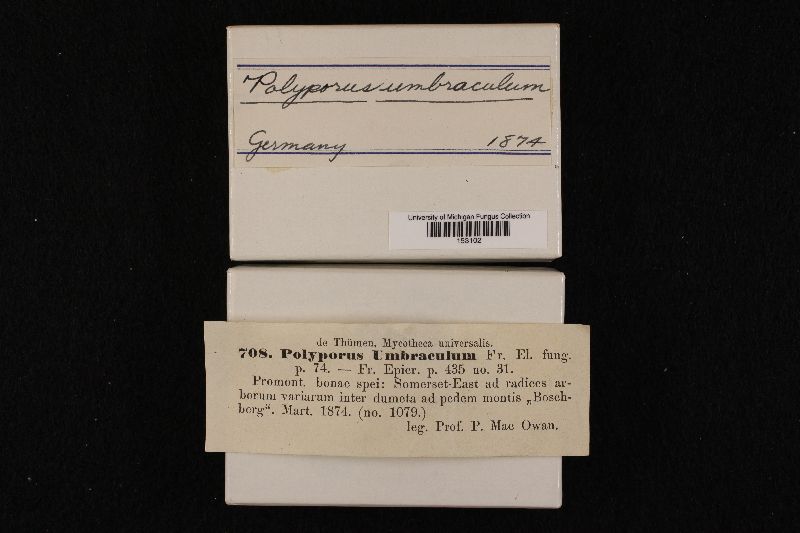 Polyporus umbraculum
Germany 1874
University of Michigan Fungus Collection
153102
de Thümen, Mycotheca universalis.
708. Polyporus Umbraculum Fr. El. fung.
p. 74. — Fr. Epicr. p. 435 no. 31.
Promont. bonae spei: Somerset-East ad radices ar-
borum variarum inter dumeta ad pedem montis „Bosch-
berg“. Mart. 1874. (no. 1079.)
leg. Prof. P. Mac Owan.